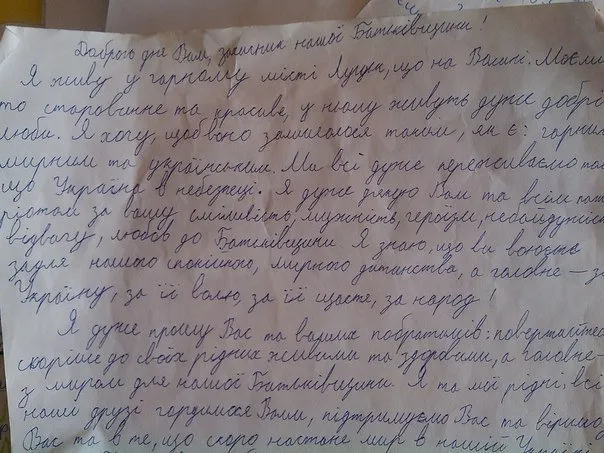 Доброго дня Вам, захисник нашої Батьківщини!
Я живу у гарному місті Луцьк, що на Волині. Моє ми
то старовинне та красиве, у ньому живуть дуже добрі
люди. Я хочу, щоб воно залишалося таким, як є: гарним
мирним та українським. Ми всі дуже переживаємо
що Україна в небезпеці. Я дуже дякую Вам та всім пат
ріотам за вашу сміливість, мужність, героїзм, небайдужіс
відвагу, любов до Батьківщини. Я знаю, що ви воюєте
задля нашого спокійного, мирного дитинства, а головне – за
Україну, за її волю, за її щастє, за народ!
Я дуже прошу Вас та ваших побратимів: повертайтес
скоріше до своїх рідних живими та здоровими, а головне –
з миром для нашої Батьківщини. Я та мої рідні, всі
наші друзі гордимося Вами, підтримуємо Вас та віримо
Вас та в те, що скоро настане мир в нашій Україні